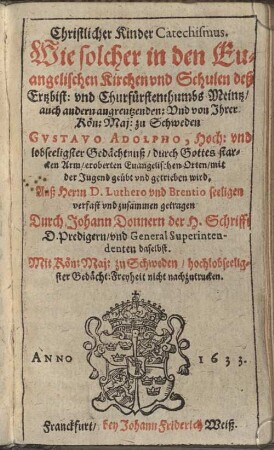 Christlicher Kinder Catechismus.
Wie solcher in den Eu-
angelischen Kirchen vnd Schulen deß
Ertzbist: vnd Churfürstenthumbs Meintz/
auch andern angrentzenden: Vnd von Ihrer
Kön: Maj: zu Schweden
GVSTAVO ADOLPHO, Hoch: vnd
lobseeligster Gedächtnuß/ durch Gottes star-
cken Arm/ eroberten Euangelischen Orten/ mit
der Jugend geübt vnd getrieben wird,
Auß Herrn D. Luthero vnd Brentio seeligen
verfast vnd zusammen getragen
Durch Johann Donnern der H. Schrifft
D. Predigern/ vnd General Superinten-
denten daselbst.
Mit Kön: Maj: zu Schweden / hochlobseelig-
ster Gedächt: Freyheit nicht nachzutrucken.
ANNO 1633.
Franckfurt/ bey Johann Friderich Weiß.